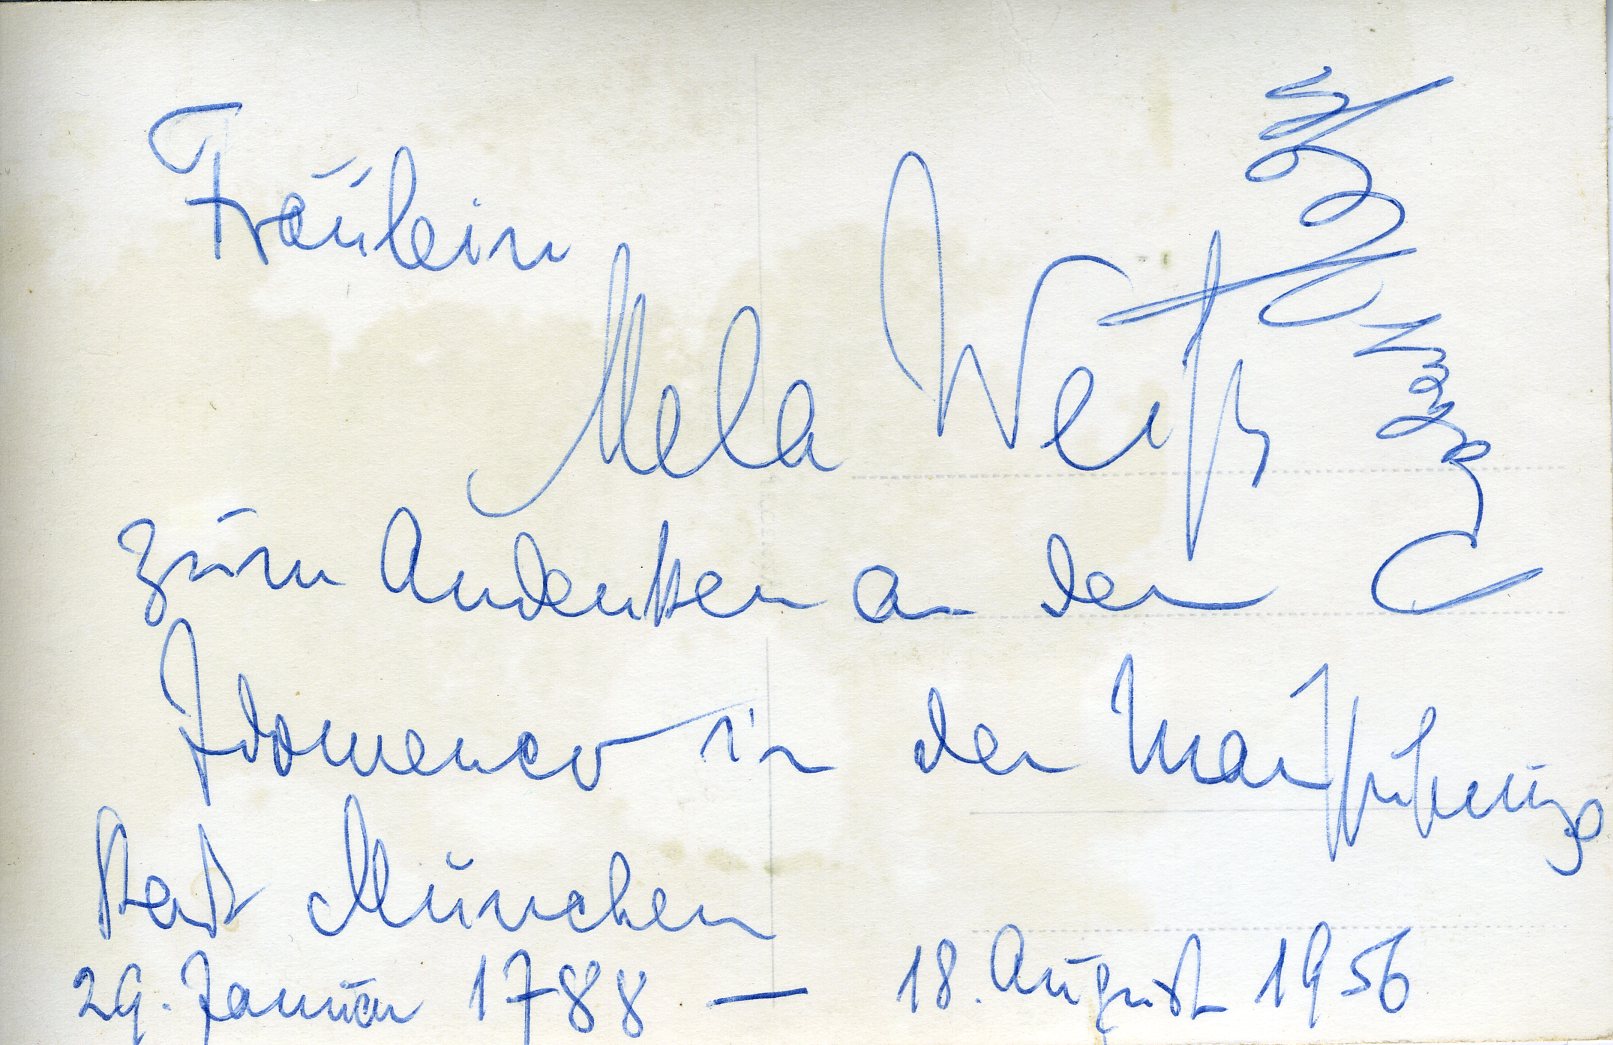 Fräulein
Mela Weiß
zum Andenken an den
Idomeneo in der Uraufführungs
stadt München
29. Januar 1788 — 18. August 1956